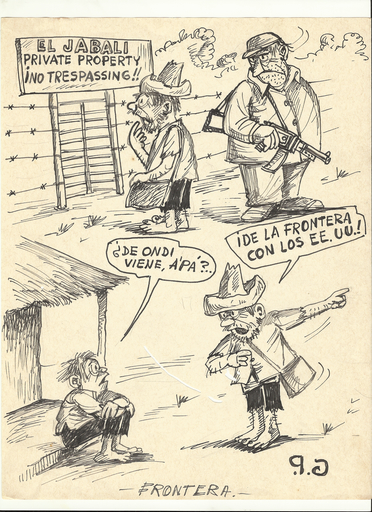 EL JABALI
PRIVATE PROPERTY
¡NO TRESPASSING!!
¿DE ONDI
VIENE, A'PÁ?..
¡DE LA FRONTERA
CON LOS EE.UU.!
G.P.
-FRONTERA.-